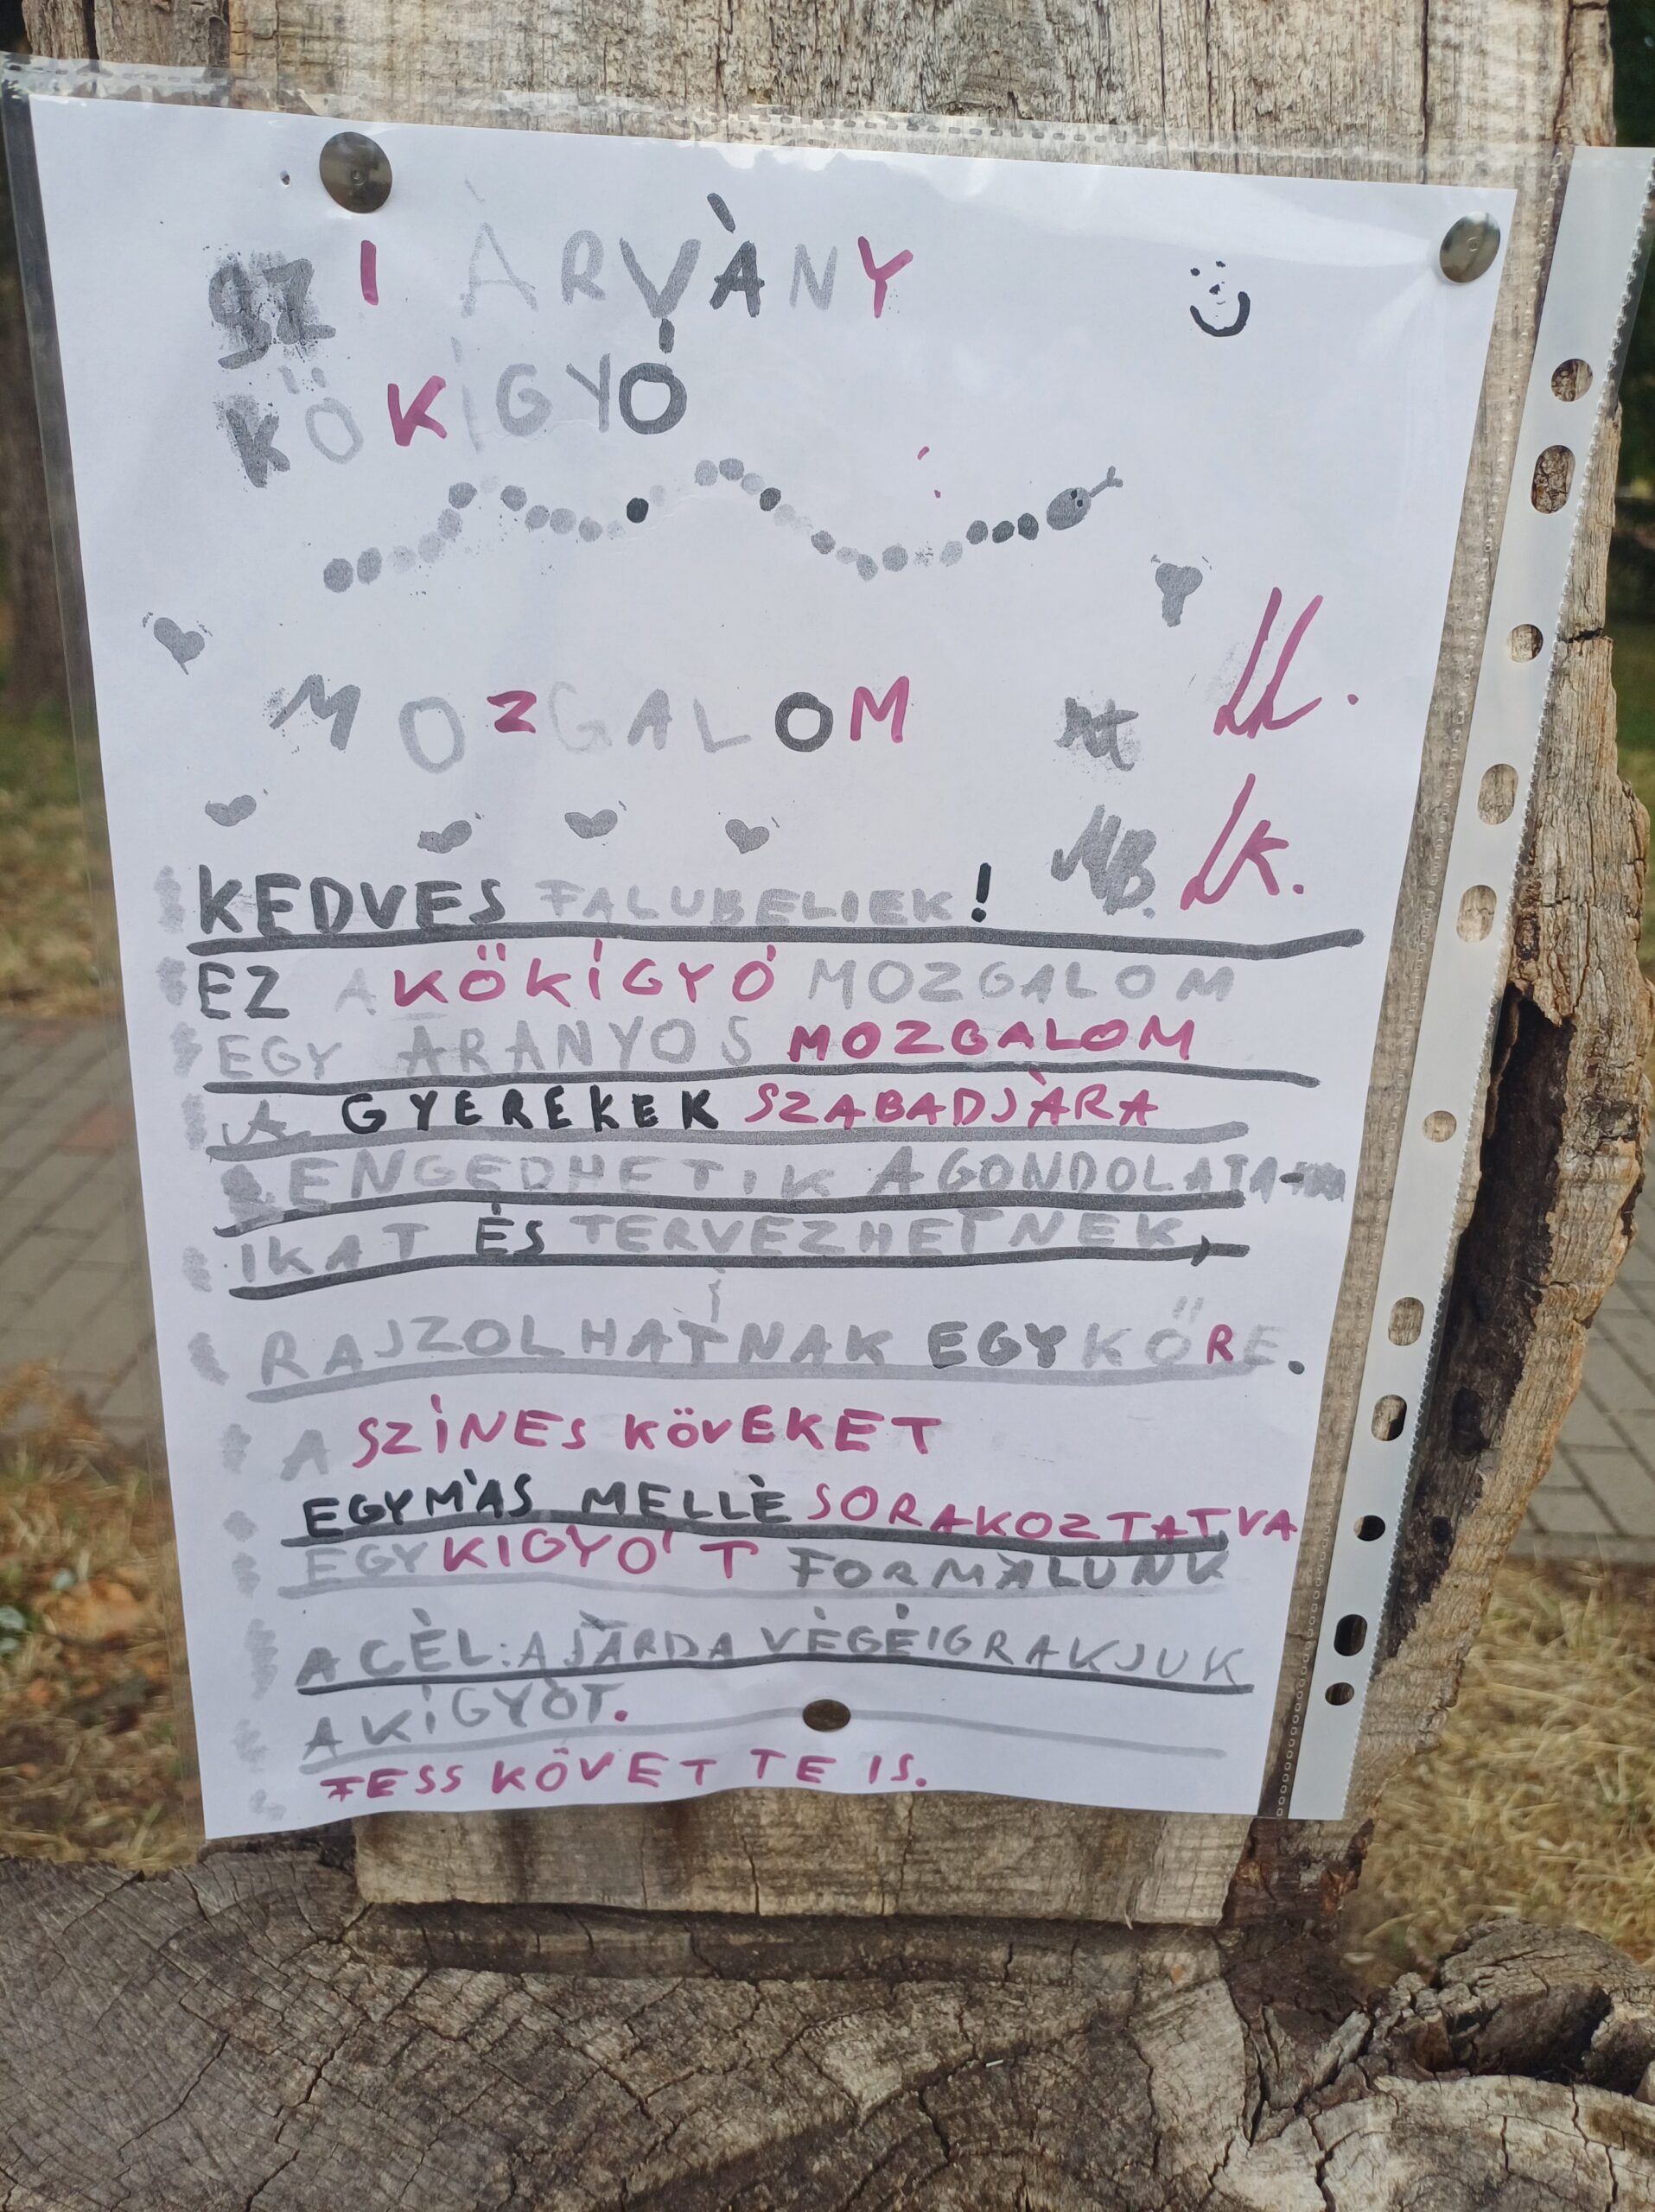 SZIVÀRVÀNY
KŐKÍGYÓ
MOZGALOM
LL.
NB. LK.
KEDVES FALUBELIEK!
EZ A KÖKÍGYÓ MOZGALOM
EGY ARANYOS MOZGALOM
A GYEREKEK SZABADJÀRA
ENGEDHETIK A GONDOLATA-
IKAT ÉS TERVEZHETNEK,
RAJZOLHATNAK EGY KŐRE.
A SZÍNES KÖVEKET
EGYMÀS MELLÈ SORAKOZTATVA
EGY KIGYÓT FORMÀLUNK
A CÈL: A JÀRDA VÈGÈIG RAKJUK
A KÍGYÒT.
FESS KÖVET TE IS.